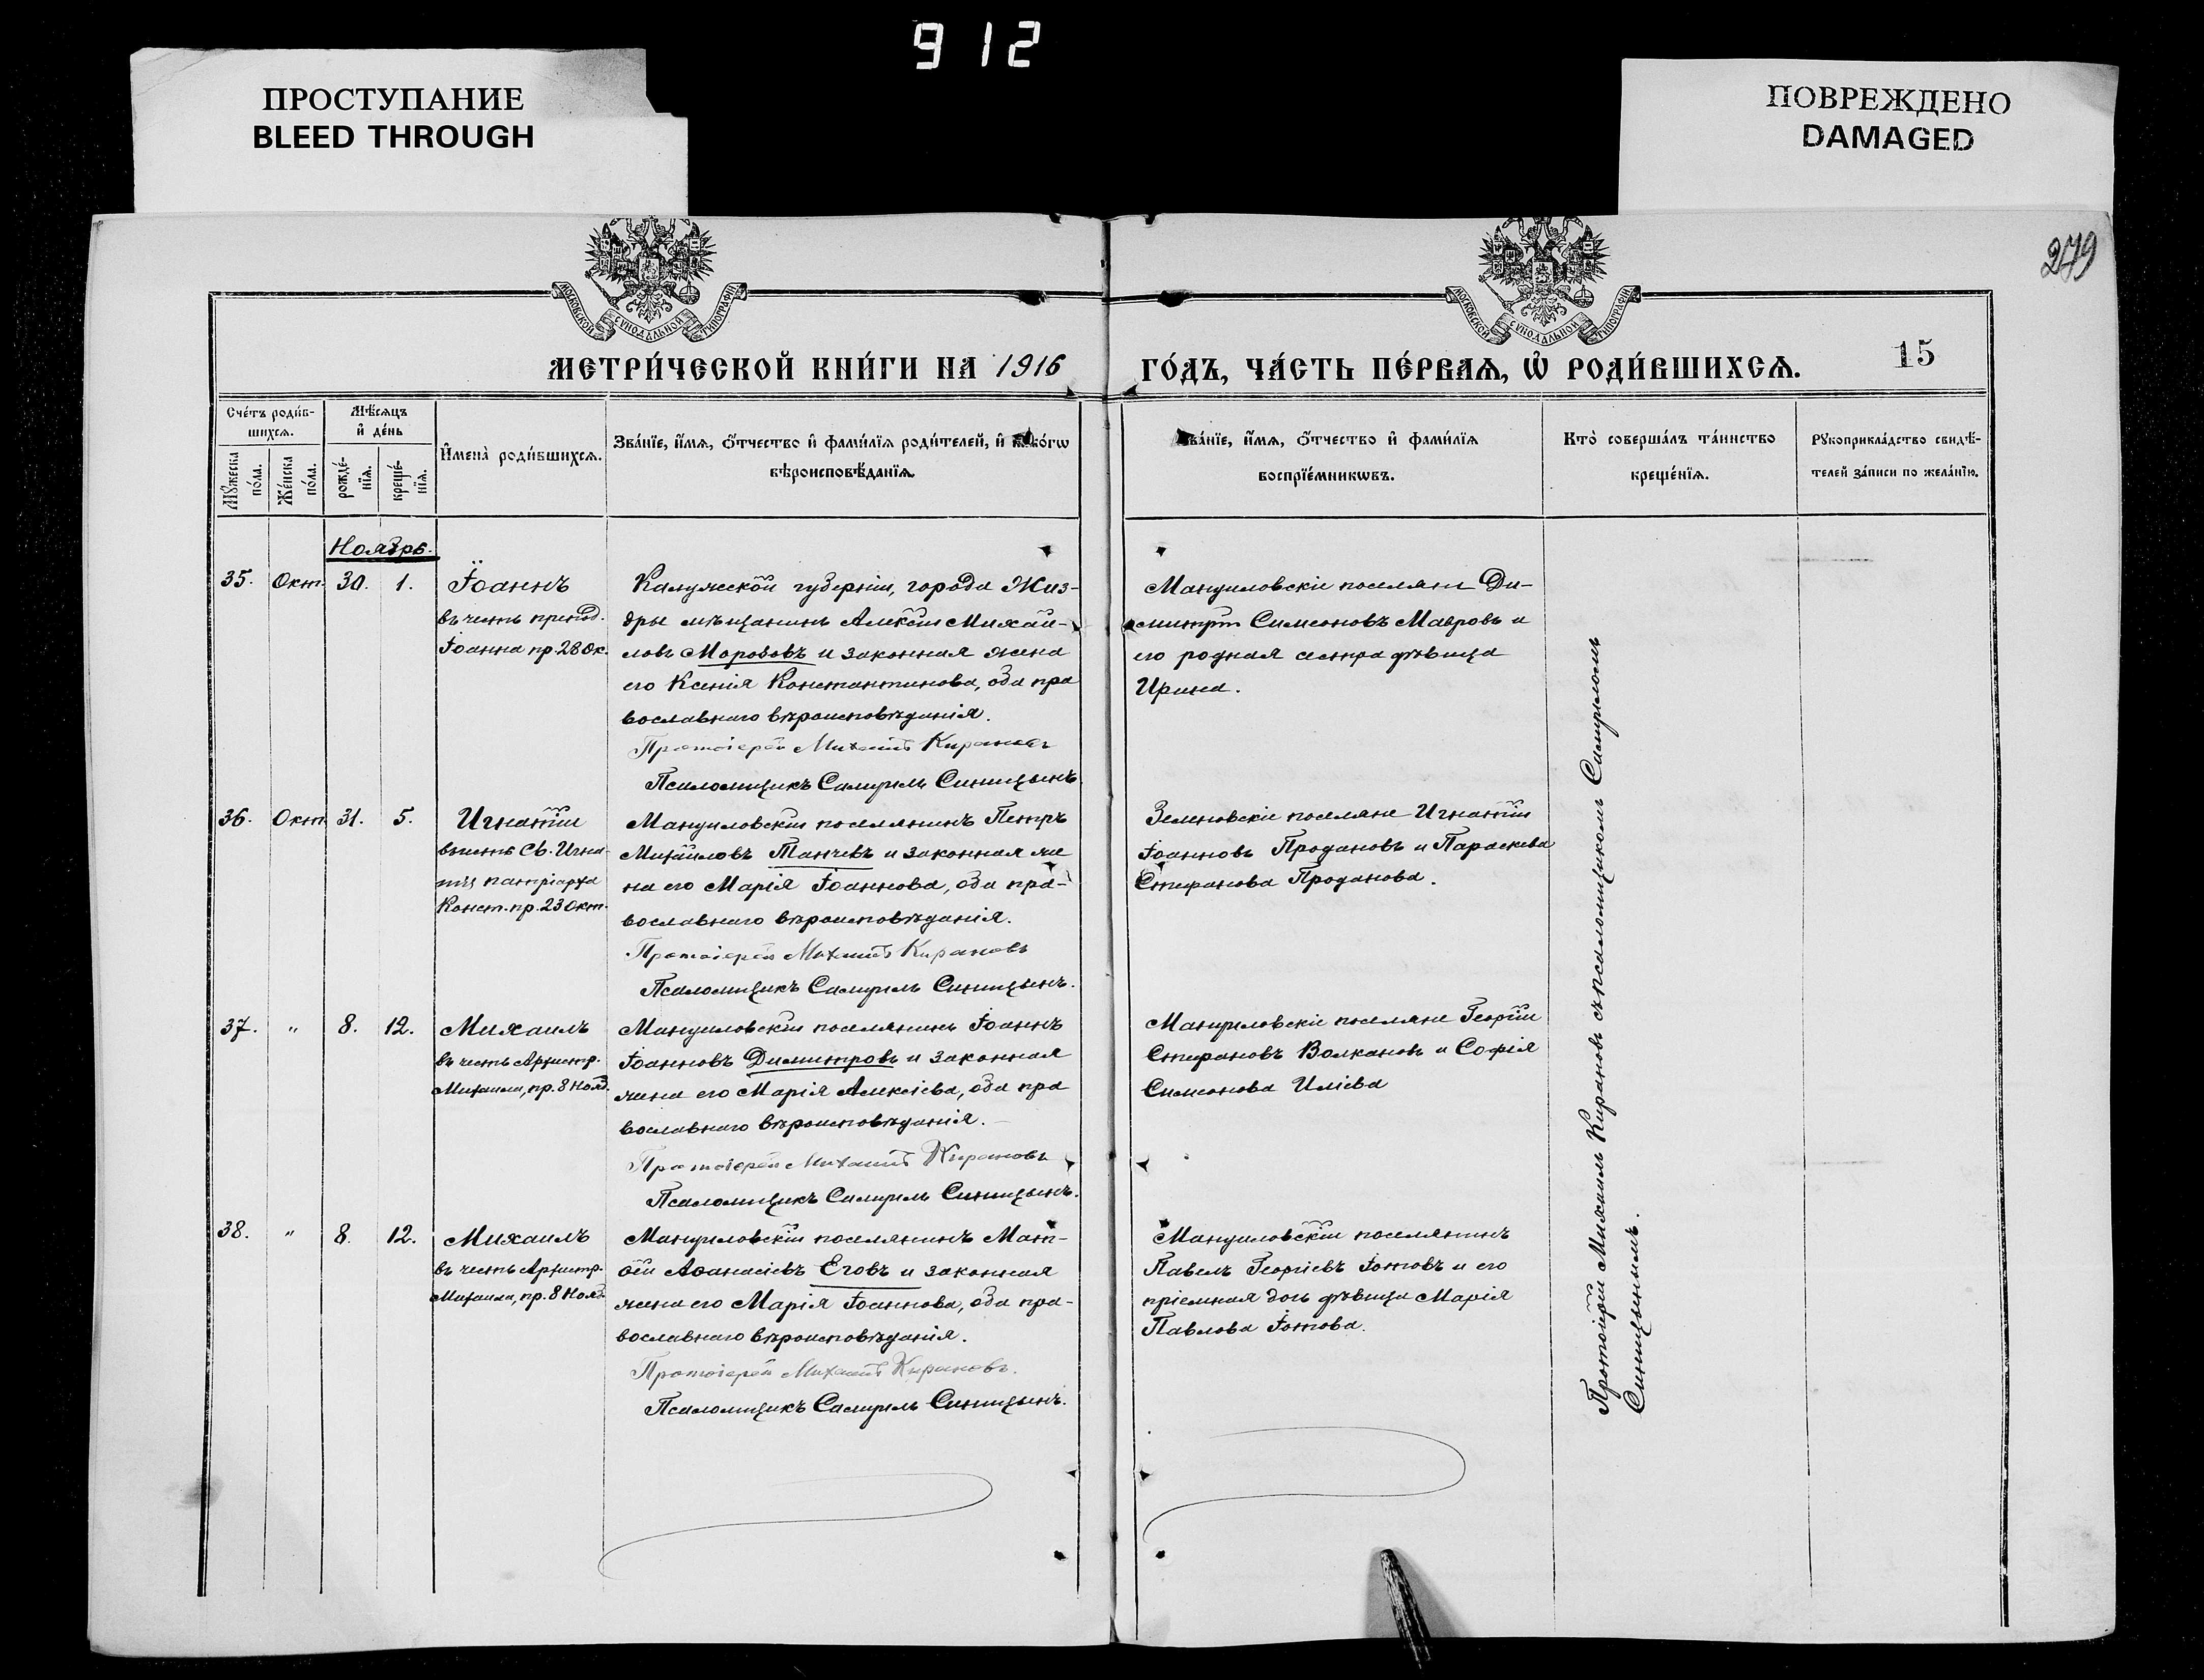 912
ПРОСТУПАНИЕ
BLEED THROUGH
ПОВРЕЖДЕНО
DAMAGED
279
МОСКОВСКОЙ СѴНОДАЛЬНОЙ ТИПОГРАФІИ
МОСКОВСКОЙ СѴНОДАЛЬНОЙ ТИПОГРАФІИ
МЕТРИ́ЧЕСКОЙ КНИ́ГИ НА 1916
ГО́ДЪ, ЧА́СТЬ ПЕ́РВАѦ, Ѡ҆ РОДИ́ВШИХСѦ.
15
Сче́тъ роди́в-
шихсѧ.
Мѣ́сѧцъ
и҆ де́нь
Мꙋ́жеска
по́ла.
Же́нска
по́ла.
рожде́-
нїѧ.
креще́-
нїѧ.
И҆мена̀ роди́вшихсѧ.
Зва́нїе, и҆́мѧ, ѻ҆́тчество и҆ фами́лїѧ роди́телей, и҆ како́гѡ
вѣроисповѣ́данїѧ.
Зва́нїе, и҆́мѧ, ѻ҆́тчество и҆ фами́лїѧ
воспрїе́мникѡвъ.
Кто̀ соверша́лъ та́инство
креще́нїѧ.
Рꙋкоприкла́дство свидѣ́-
телей за́писи по жела́нїю.
Ноябрь.
35. Окт. 30. 1. Іоаннъ
въ честь препод.
Іоанна пр. 28 Ок.
Калужской губерніи, города Жиз-
дры мѣщанинъ Алексій Михаи-
ловъ Морозовъ и законная жена
его Ксенія Константинова, оба пра
вославнаго вѣроисповѣданія.
Протоіерей Михаилъ Кирановъ
Псаломщикъ Самуилъ Синицынъ
Мануиловскіе поселяне Ди-
митрій Симеоновъ Мавровъ и
его родная сестра дѣвица
Ирина.
36. Окт. 31. 5. Игнатій
въ честь Св. Игна-
тія патріарха
Конст. пр. 23 Окт.
Мануиловскій поселянинъ Петръ
Михаиловъ Танчевъ и законная же
на его Марія Іоаннова, оба пра-
вославнаго вѣроисповѣданія.
Протоіерей Михаилъ Кирановъ
Псаломщикъ Самуилъ Синицынъ.
Зеленовскіе поселяне Игнатій
Іоанновъ Продановъ и Параскева
Стефанова Проданова.
37. " 8. 12. Михаилъ
въ честь Архистр.
Михаила, пр. 8 Нояб.
Мануиловскій поселянинъ Іоаннъ
Іоанновъ Димитровъ и законная
жена его Марія Алексіева, оба пра
вославнаго вѣроисповѣданія.
Протоіерей Михаилъ Кирановъ
Псаломщикъ Самуилъ Синицынъ.
Мануиловскіе поселяне Георгій
Стефановъ Волкановъ и Софія
Симеонова Иліева
38. " 8. 12. Михаилъ
въ честь Архистр.
Михаила, пр. 8 Нояб.
Мануиловскій поселянинъ Мат-
ѳей Аѳанасіевъ Еговъ и законная
жена его Марія Іоаннова, оба пра-
вославнаго вѣроисповѣданія.
Протоіерей Михаилъ Кирановъ.
Псаломщикъ Самуилъ Синицынъ.
Мануиловскій поселянинъ
Павелъ Георгіевъ Іотовъ и его
пріемная дочь дѣвица Марія
Павлова Іотова.
Протоіерей Михаилъ Кирановъ съ псаломщикомъ Самуиломъ
Синицынымъ.